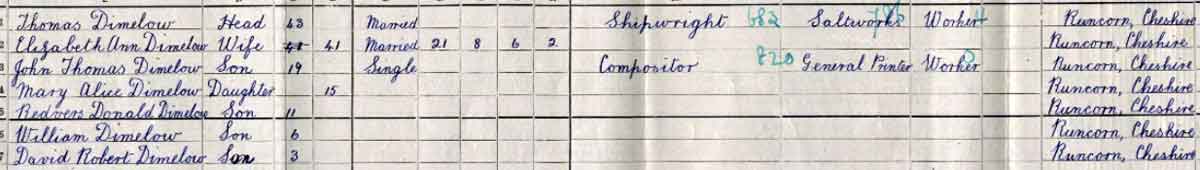 1 Thomas Dimelow Head 43 Married Shipwright 682 Saltworks Worker Runcorn, Cheshire
2 Elizabeth Ann Dimelow Wife 41 41 Married 21 8 6 2 Runcorn, Cheshire
3 John Thomas Dimelow Son 19 Single Compositor 820 General Printer Worker Runcorn, Cheshire
4 Mary Alice Dimelow Daughter 15 Runcorn, Cheshire
5 Redvers Donald Dimelow Son 11 Runcorn, Cheshire
6 William Dimelow Son 6 Runcorn, Cheshire
7 David Robert Dimelow Son 3 Runcorn, Cheshire